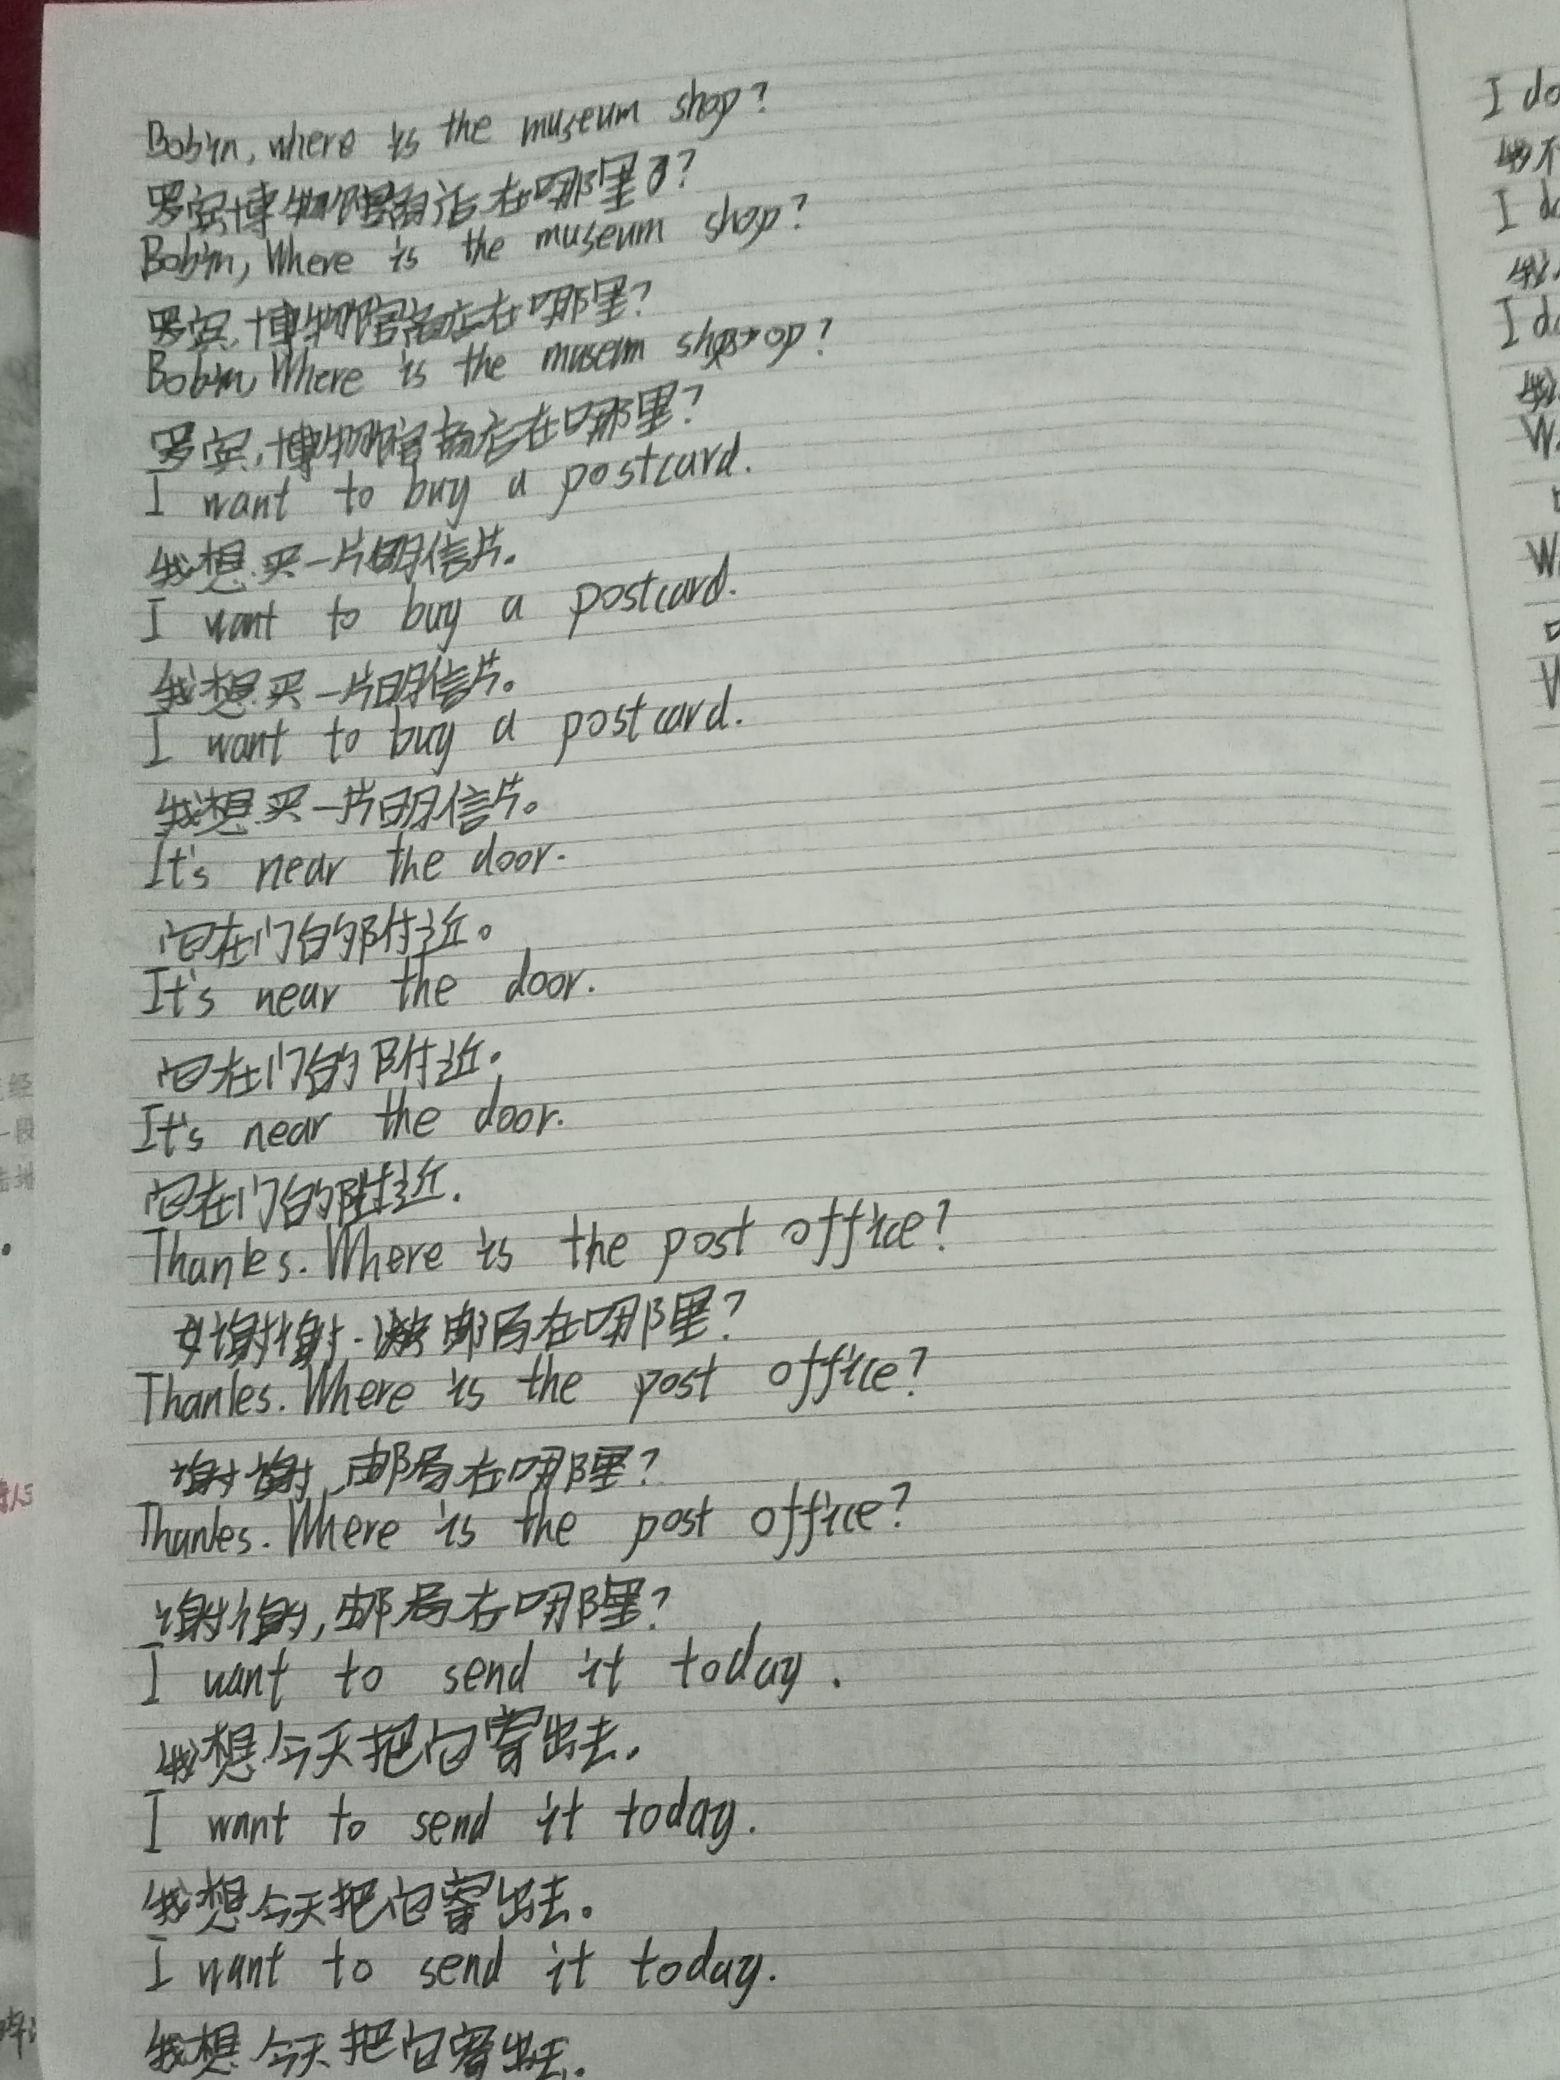 Bobin, where is the museum shop?
罗宾博物馆商店在哪里?
Bobin, Where is the museum shop?
罗宾,博物馆商店在哪里?
Bobin, Where is the museum shop?
罗宾,博物馆商店在哪里?
I want to buy a postcard.
我想买一片明信片。
I want to buy a postcard.
我想买一片明信片。
I want to buy a postcard.
我想买一片明信片。
It's near the door.
它在门的附近。
It's near the door.
它在门的附近。
It's near the door.
它在门的附近.
Thanks. Where is the post office?
谢谢.邮局在哪里?
Thanks. Where is the post office?
谢谢,邮局在哪里?
Thanks. Where is the post office?
谢谢,邮局在哪里?
I want to send it today.
我想今天把它寄出去.
I want to send it today.
我想今天把它寄出去。
I want to send it today.
我想今天把它寄出去.
I do
I do
I do